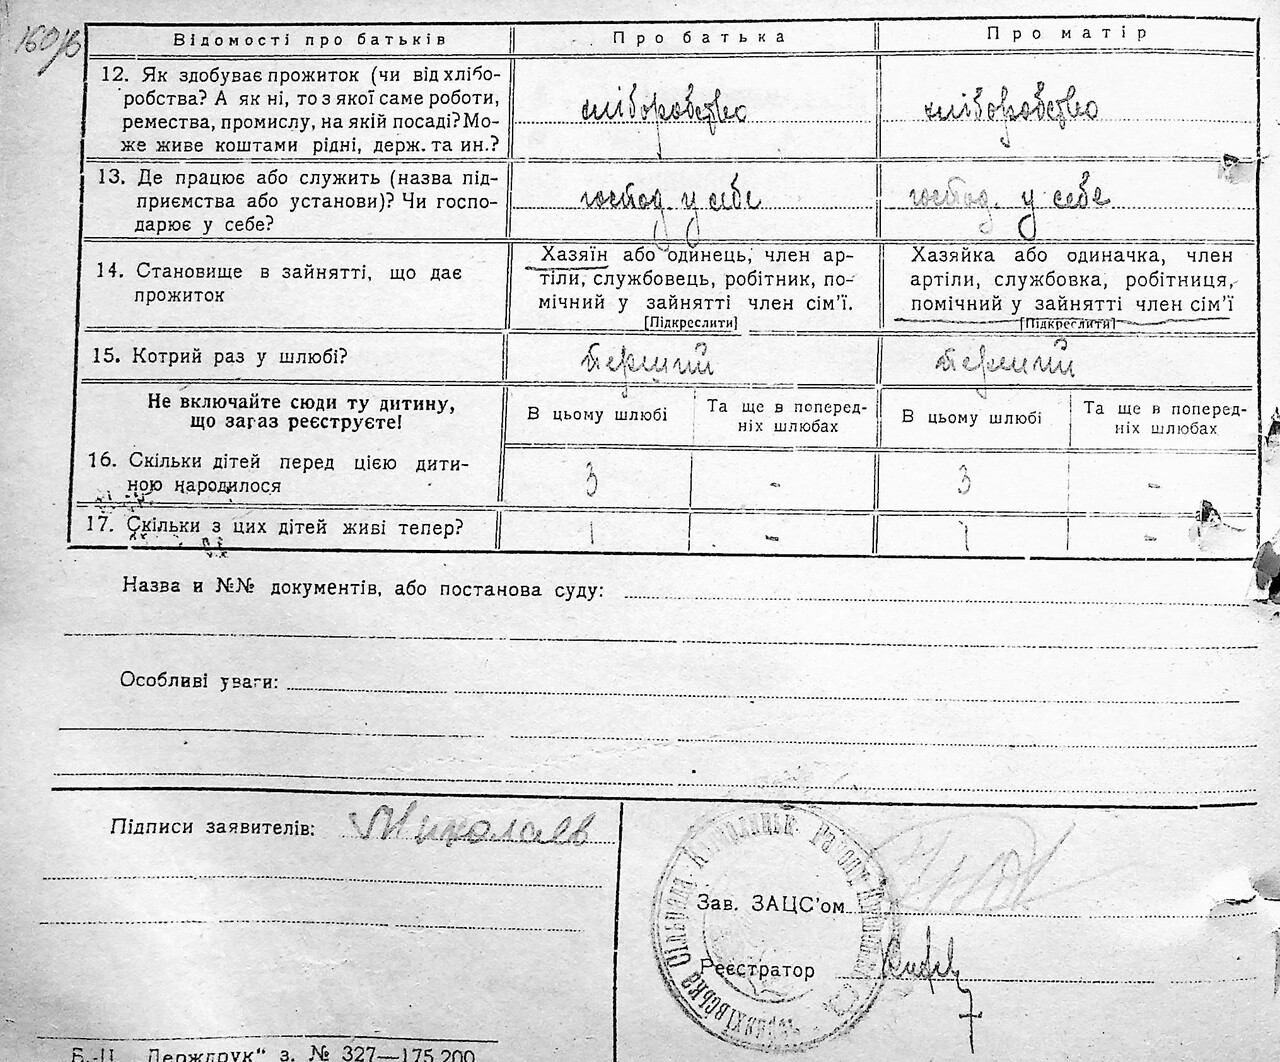 160/в
Відомості про батьків
Про батька
Про матір
12. Як здобуває прожиток (чи від хлібо-
робства? А як ні, то з якої саме роботи,
ремества, промислу, на якій посаді? Мо-
же живе коштами рідні, держ. та ин.?
хліборобство
хліборобство
13. Де працює або служить (назва під-
приємства або установи)? Чи госпо-
дарює у себе?
господ. у себе
господ. у себе
14. Становище в зайнятті, що дає
прожиток
Хазяїн або одинець, член ар-
тіли, службовець, робітник, по-
мічний у зайнятті член сім'ї.
[Підкреслити]
Хазяйка або одиначка, член
артіли, службовка, робітниця,
помічний у зайнятті член сім'ї
[Підкреслити]
15. Котрий раз у шлюбі?
перший
перший
Не включайте сюди ту дитину,
що зараз реєструєте!
В цьому шлюбі
Та ще в поперед-
ніх шлюбах
В цьому шлюбі
Та ще в поперед-
ніх шлюбах
16. Скільки дітей перед цією дити-
ною народилося
3
-
3
-
17. Скільки з цих дітей живі тепер?
1
-
1
-
Назва и №№ документів, або постанова суду:
Особливі уваги:
Підписи заявителів: Миколаєв
Зав. ЗАЦС'ом
Реєстратор
Сільрада
Району
Б.-Ц. „Держдрук" з. № 327—175.200